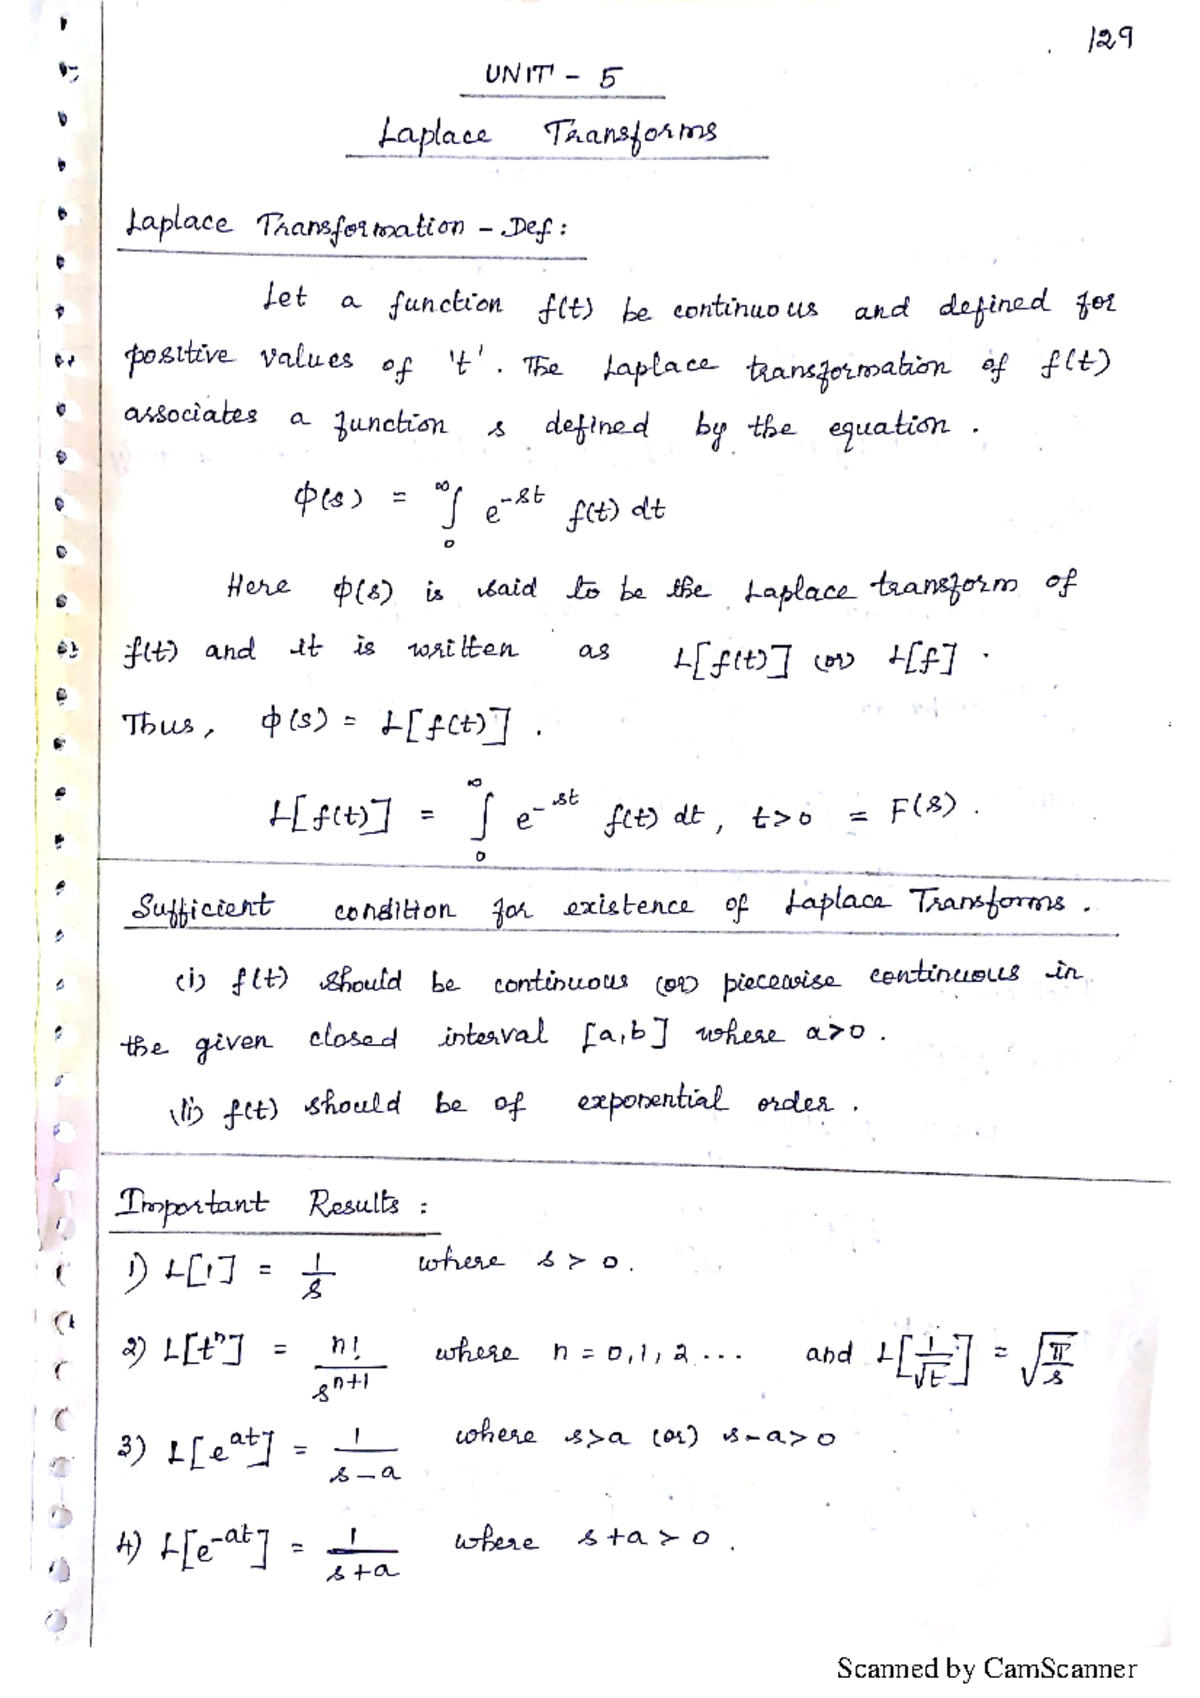 129
UNIT - 5
Laplace Transforms
Laplace Transformation - Def:
Let a function f(t) be continuous and defined for
positive values of 't'. The Laplace transformation of f(t)
associates a function s defined by the equation.
ϕ(s) = ∫₀^∞ e^-st f(t) dt
Here ϕ(s) is said to be the Laplace transform of
f(t) and it is written as L[f(t)] (or) L[f].
Thus, ϕ(s) = L[f(t)].
L[f(t)] = ∫₀^∞ e^-st f(t) dt, t>0 = F(s).
Sufficient condition for existence of Laplace Transforms.
(i) f(t) should be continuous (or) piecewise continuous in
the given closed interval [a,b] where a>0.
(ii) f(t) should be of exponential order.
Important Results:
1) L[1] = 1/s where s > 0.
2) L[t^n] = n!/s^n+1 where n = 0,1,2... and L[1/√t] = √π/s
3) L[e^at] = 1/s-a where s>a (or) s-a>0
4) L[e^-at] = 1/s+a where s+a>0.
Scanned by CamScanner